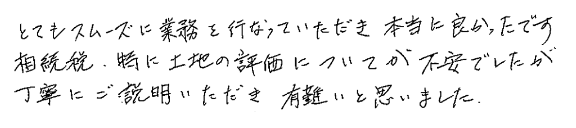 とてもスムーズに業務を行なっていただき 本当に良かったです
相続税．特に土地の評価についてが 不安でしたが
丁寧にご説明いただき 有難いと思いました．